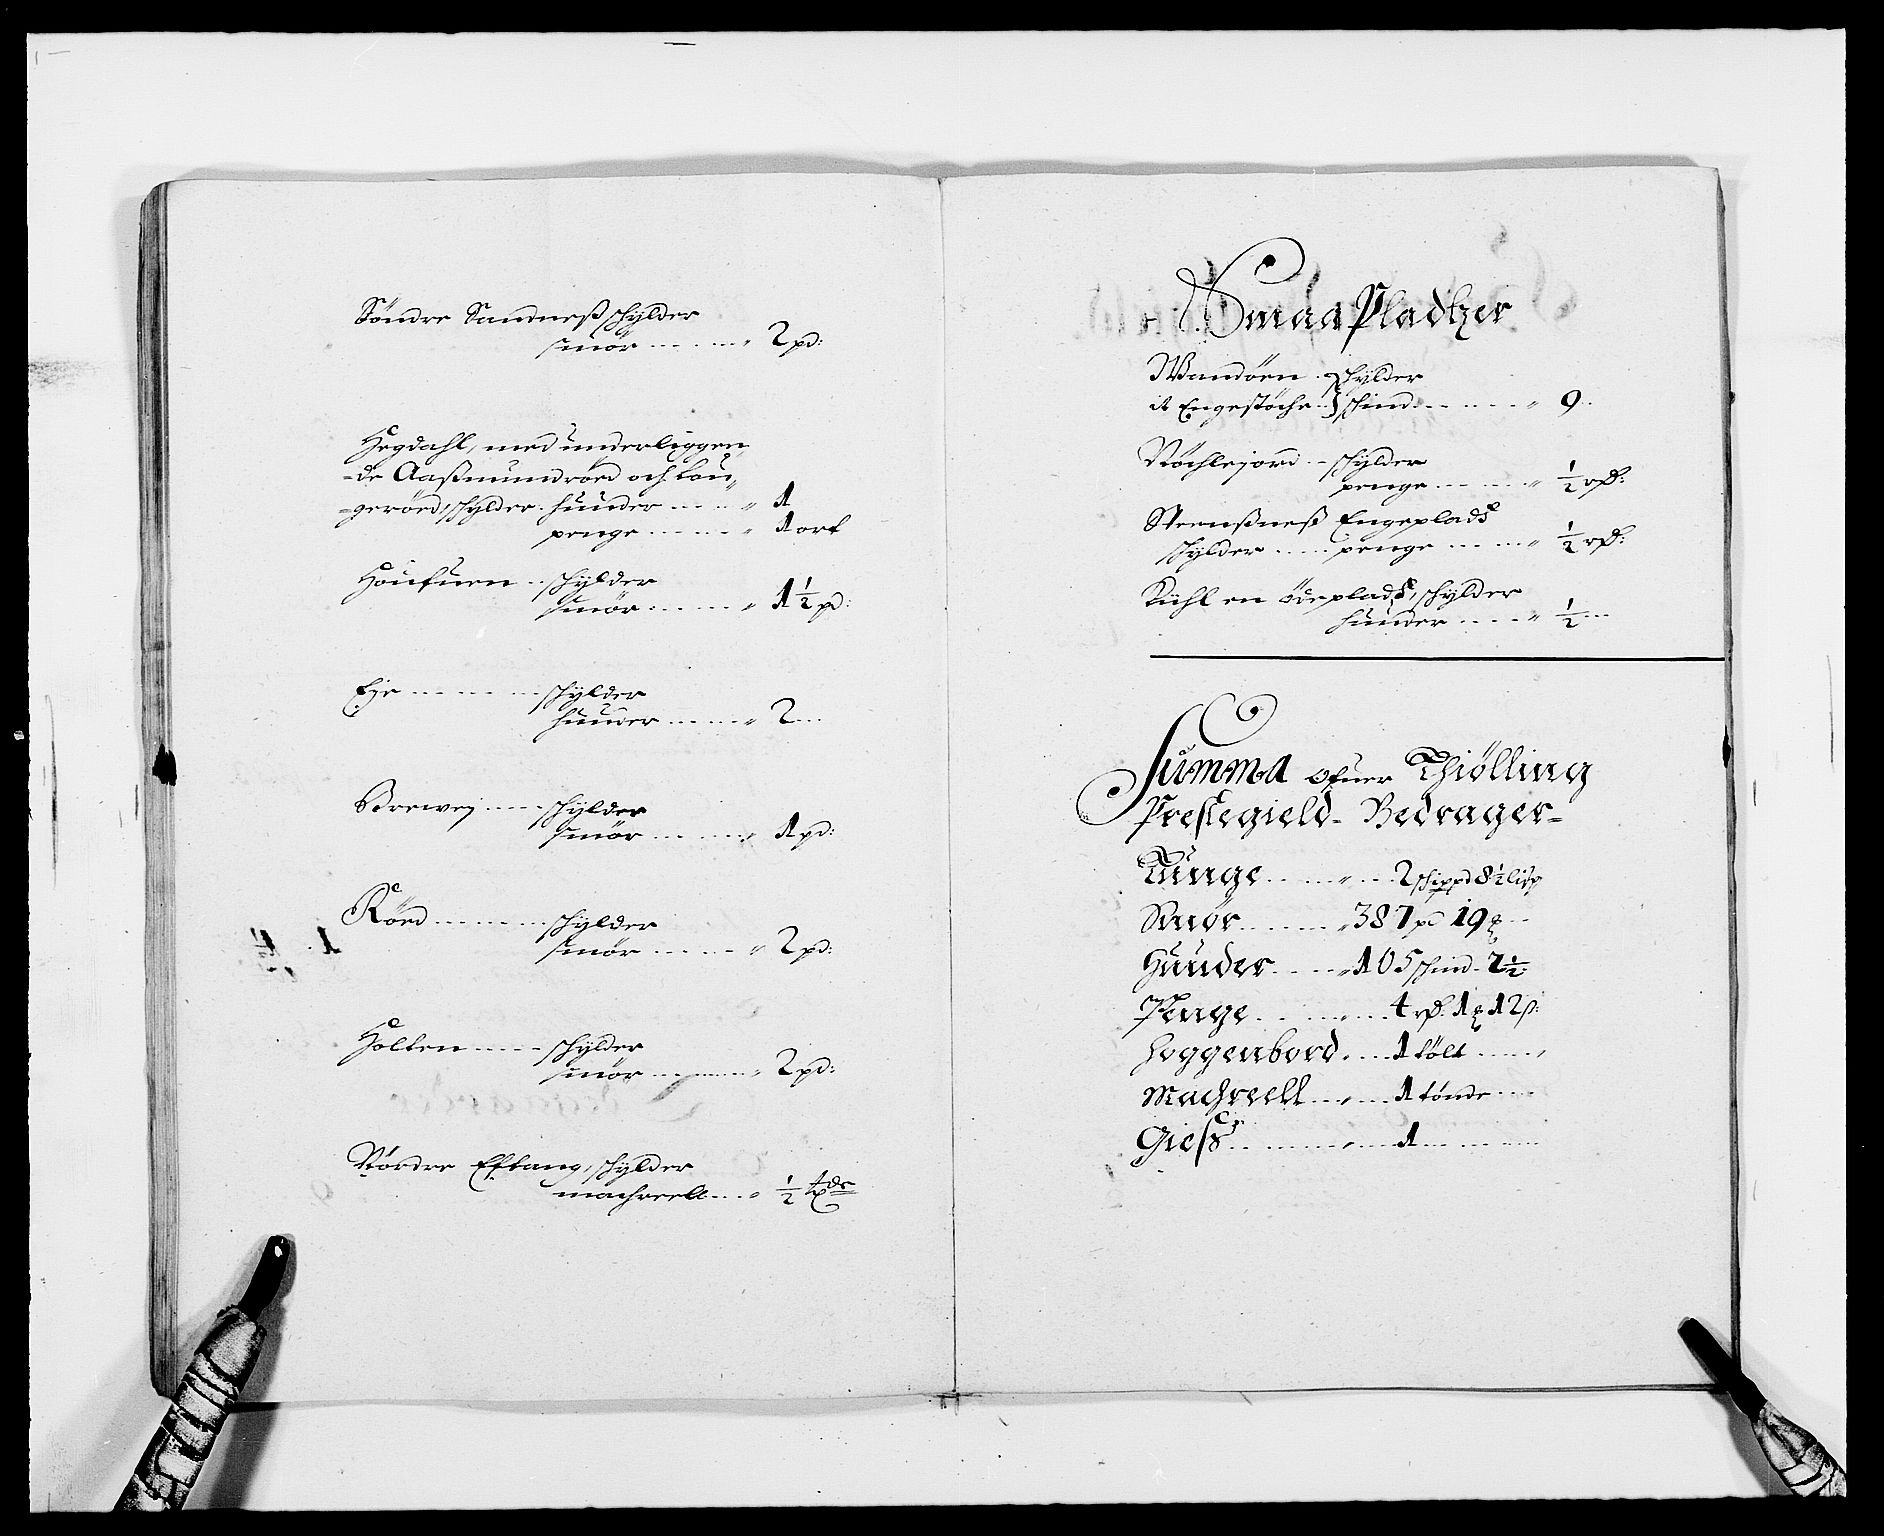 Söndre Sandneß schylder
smör ...... 2 pd:
Hegdahl, med underliggen,
=de Aaßmundröed och Lou,
=geröed, schylder. huuder ..... 1
penge ...... 1 ort
Houfuen .. schylder
smör ...... 1½ pd:
Eje ...... schylder
huuder ...... 2 ...
Brewej ..... schylder
smör ...... 1 pd:
Röed ...... schylder
smör ...... 2 pd:
Holten ..... schylder
smör ...... 2 pd:
Nördre Eftang, schylder
machreell ... ½ tde
Smaa Pladtzer
Wandöen . schylder
it Engestöche .. schind ...... 9 ..
Nöchlejord .. schylder
penge ...... ½ rd:
Steenßneß Engeplads
schylder ..... penge ...... ½ rd:
Kühl en ödeplads, schylder
huuder ..... ½ ...
Summa ofuer Thiölling
Prestegield- Bedrager-
Tunge ...... 2 schippd 8½ lisp
Smör ...... 387 pd 19 ...
Huuder ..... 105 schind 7½:
Penge ...... 4 rd: 1 12 ß:
Hoggenbord ..... 1 tölt .....
Machreell ..... 1 tönde ....
Gieß ...... 1 ......